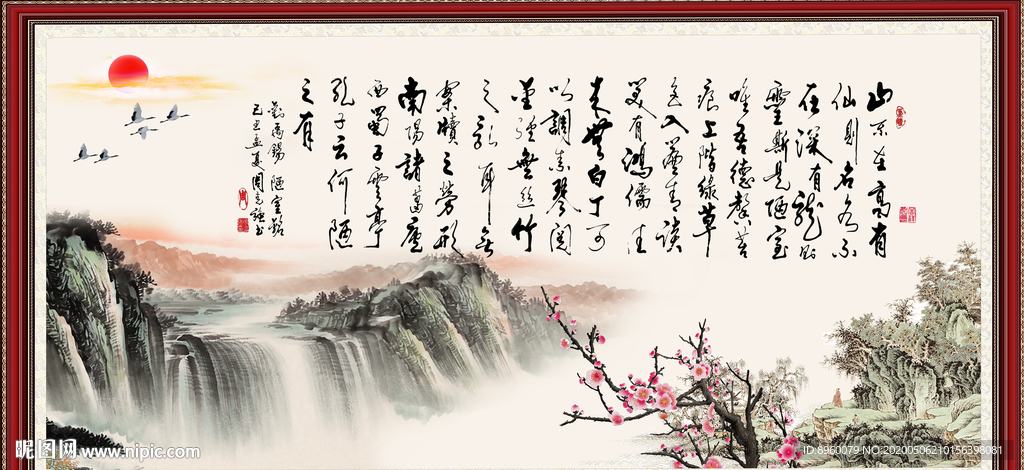 山不在高有
仙則名水不
在深有龍則
靈斯是陋室
唯吾德馨苔
痕上階綠草
色入簾青談
笑有鴻儒往
来無白丁可
以調素琴閱
金經無絲竹
之亂耳無
案牘之勞形
南陽諸葛廬
西蜀子雲亭
孔子云何陋
之有
劉禹錫 陋室銘
己丑孟夏周克强书
昵图网 www.nipic.com
ID:8960079 NO:20200506210156398081